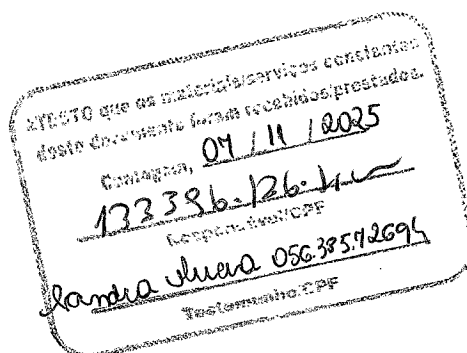 ATESTO que os materiais/serviços constantes
deste documento foram recebidos/prestados.
Contagem, 07 / 11 / 2025
Responsável/CPF
Sandra 056.385.72694
Testemunha/CPF